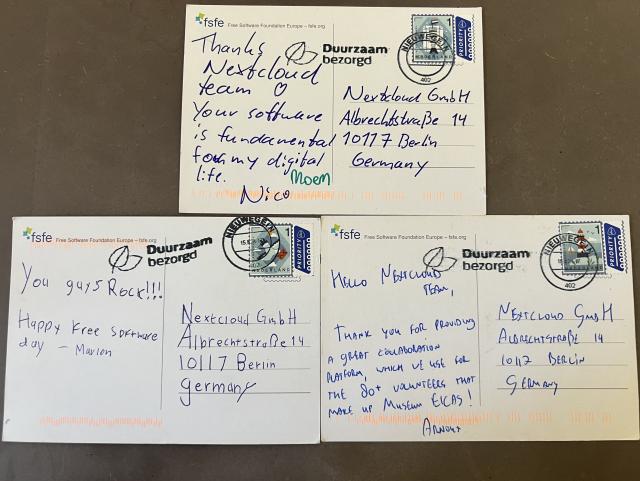 fsfe Free Software Foundation Europe – fsfe.org
Duurzaam
bezorgd
NIEUWEGEIN
402
1
NEDERLAND
PRIORITY
Thanks
Nextcloud
team ♡
Your software
is fundamental
for my digital
life.
Moem
Nico
Nextcloud GmbH
Albrechtstraße 14
10117 Berlin
Germany
fsfe Free Software Foundation Europe – fsfe.org
Duurzaam
bezorgd
NIEUWEGEIN
1
NEDERLAND
PRIORITY
You guys Rock!!!
Happy Free Software
day – Marion
Nextcloud GmbH
Albrechtstraße 14
10117 Berlin
germany
fsfe Free Software Foundation Europe – fsfe.org
Duurzaam
bezorgd
NIEUWEGEIN
402
1
PRIORITY
HELLO NEXTCLOUD
TEAM,
THANK YOU FOR PROVIDING
A GREAT COLLABORATION
PLATFORM, WHICH WE USE FOR
THE 80+ VOLUNTEERS THAT
MAKE UP MUSEUM EICAS!
ARNOUT
NEXTCLOUD GMBH
ALBRECHTSTRAßE 14
10117 BERLIN
GERMANY